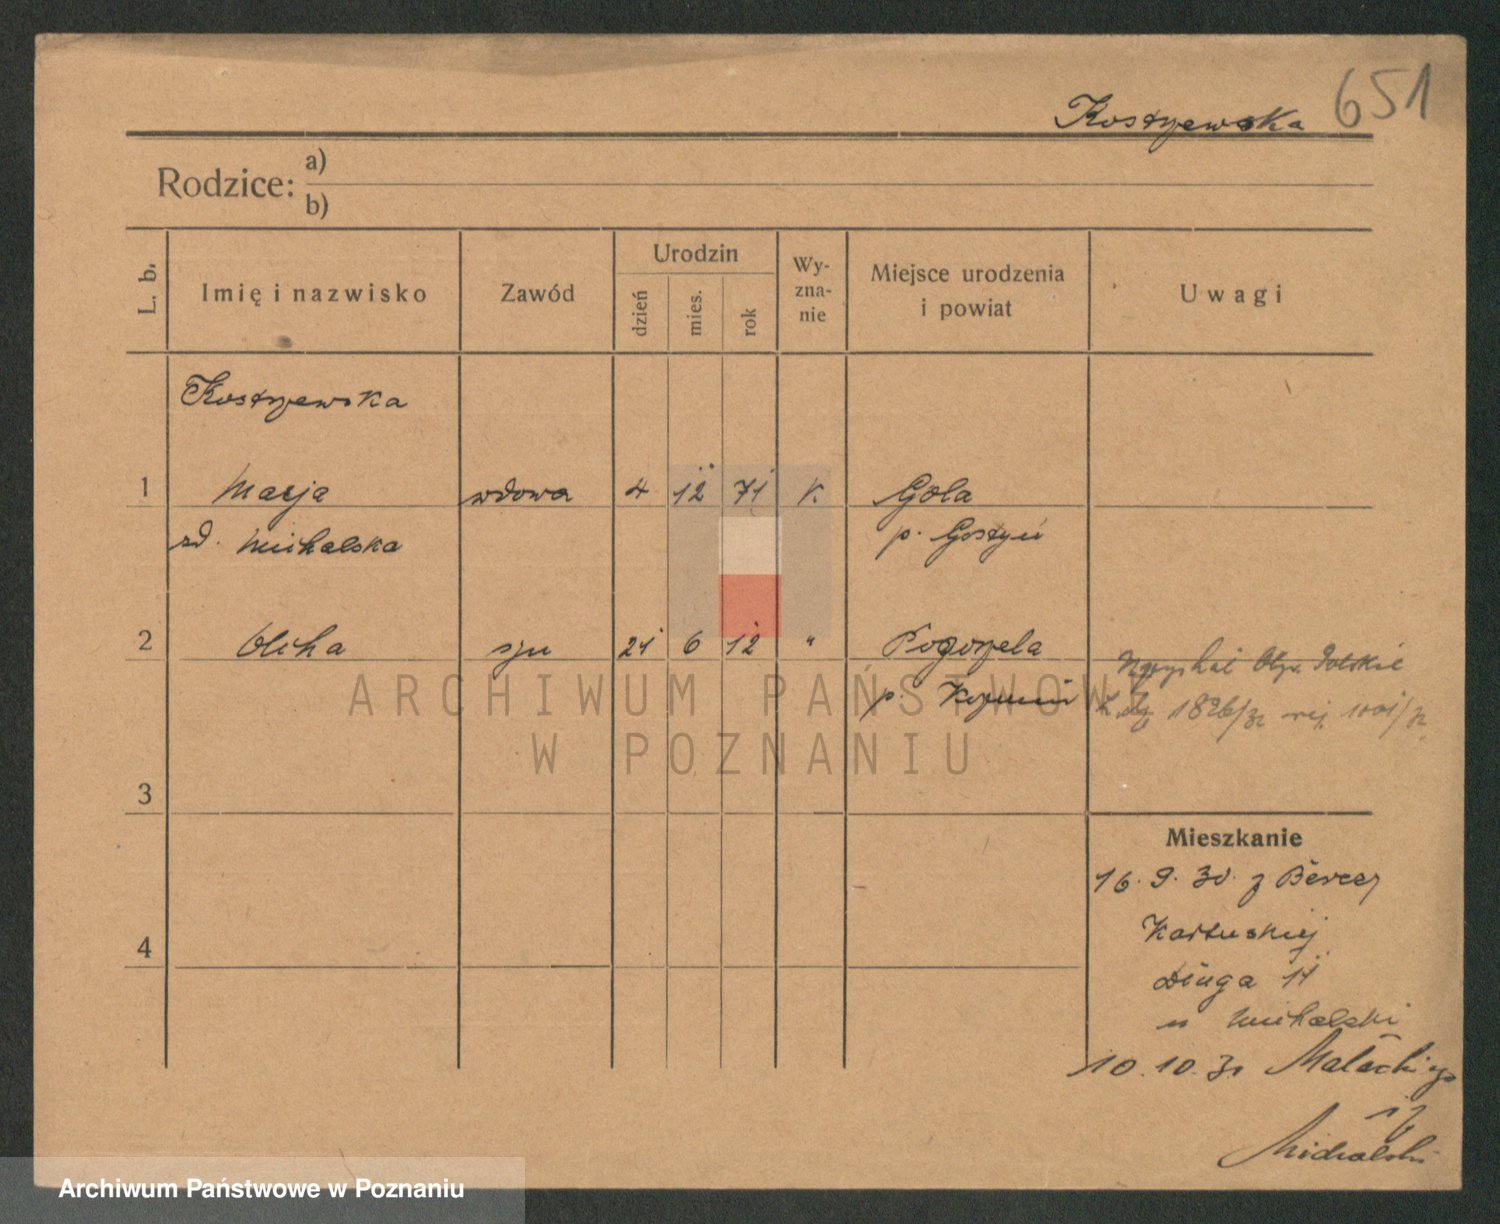 651
Kostrzewska
Rodzice: a)
b)
L. b.
Imię i nazwisko
Zawód
Urodzin
dzień
mies.
rok
Wy-
zna-
nie
Miejsce urodzenia
i powiat
Uwagi
Kostrzewska
1 Marja wdowa 4 12 71 k. Gola
zd. Michalska p. Gostyń
2 syn 21 6 12 " Pogorzela
p. Koźmin
Polskie
1826/32 rej. 1001/32
3
4
Mieszkanie
16. 9. 30. z
Kartuskiej
Długa 11
u Michalski
10.10.31 Małeckiego
17
Michalski
ARCHIWUM PAŃSTWOWE
W POZNANIU
Archiwum Państwowe w Poznaniu